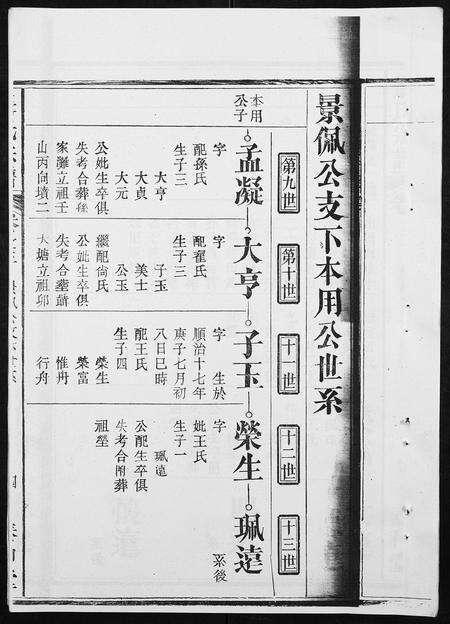 景佩公支下本用公世系
第九世
第十世
十一世
十二世
十三世
本用
公子
孟凝
大亨
子玉
榮生
珮遠
系後
字
配孫氏
生子三
大亨
大貞
大元
公妣生卒俱
失考合葬
家灘立祖壬
山丙向墳二
字
配翟氏
生子三
子玉
美士
公玉
繼配尙氏
公妣生卒俱
失考合葬
大塘立祖
字 生於
順治十七年
庚子七月初
八日巳時
配王氏
生子四
榮生
榮富
惟舟
行舟
字
妣王氏
生子一
珮遠
公配生卒俱
失考合附葬
祖塋